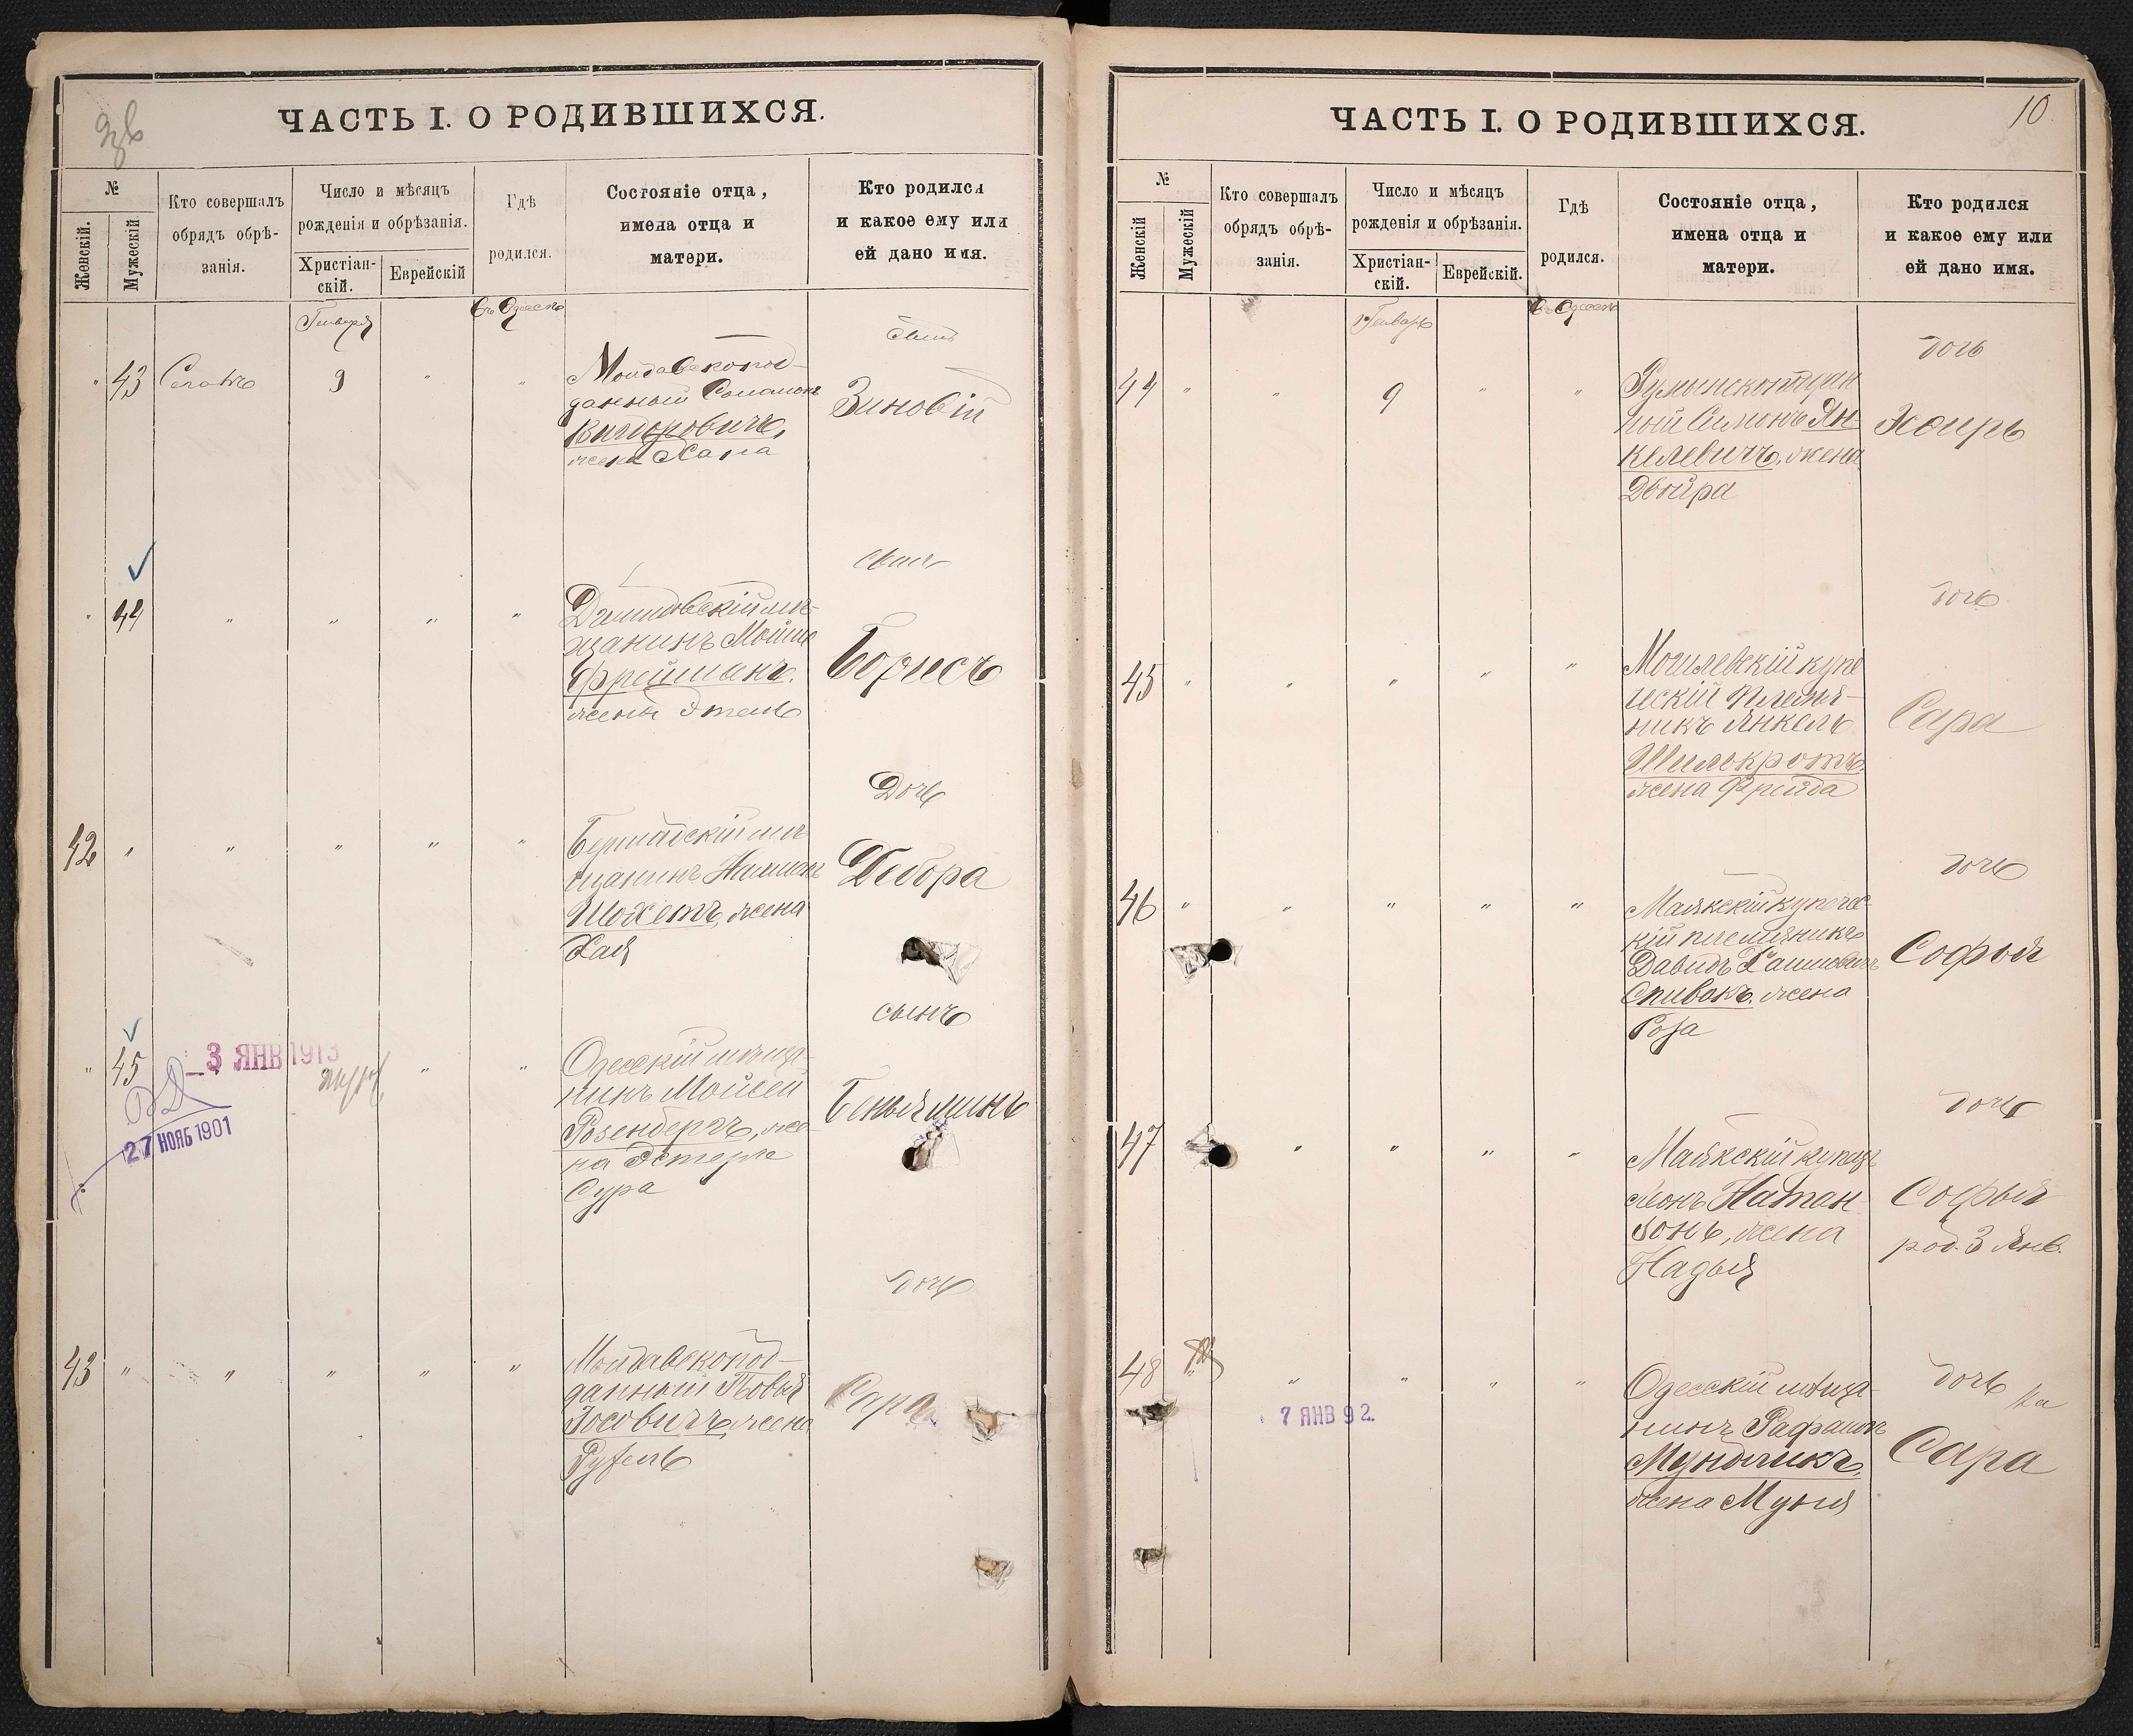 ЧАСТЬ I. О РОДИВШИХСЯ.
№
Женскій.
Мужескій
Кто совершалъ
обрядъ обрѣ-
занія.
Число и мѣсяцъ
рожденія и обрѣзанія.
Христіан-
скій.
Еврейскій
Гдѣ
родился.
Состояніе отца,
имена отца и
матери.
Кто родился
и какое ему или
ей дано имя.
Января
Въ Одессѣ
" 43
9 " "
Молдавскопод-
данный Соломонъ
жена Хана
сынъ
Зиновій
" 44 " " " "
мѣ-
щанинъ
Фрейманъ,
жена Этель
сынъ
Борисъ
42 " " " " "
Бершадскій мѣ-
щанинъ Нахманъ
Шохетъ, жена
Хая
Дочь
Дебора
" 45 " "
- 3 ЯНВ 1913
27 НОЯБ 1901
Одесскій мѣща-
нинъ Мойсей
Розенбергъ, же-
на Эстеръ
Сура
сынъ
Беньяминъ
43 " " " " "
Молдавскопод-
данный Товья
Іосовичъ, жена
Рухель
дочь
Сара
10.
ЧАСТЬ I. О РОДИВШИХСЯ.
№
Женскій
Мужескій
Кто совершалъ
обрядъ обрѣ-
занія.
Число и мѣсяцъ
рожденія и обрѣзанія.
Христіан-
скій.
Еврейскій.
Гдѣ
родился.
Состояніе отца,
имена отца и
матери.
Кто родился
и какое ему или
ей дано имя.
Январь
Въ Одессѣ
44 " " 9 " "
Румынскоподдан
ный Симонъ Ян-
келевичъ, жена
Двойра
дочь
Эсѳирь
45 " " " " "
Могилевскій купе
ческій племян-
никъ Янкель
Шилькротъ,
жена Фрейда
дочь
Сара
46 " " " " "
Маякскій купечес-
кій племянникъ
Давидъ Хаимовичъ
Спивакъ, жена
Роза
дочь
Софья
47 " " " "
Маякскій купецъ
Леонъ Натан-
зонъ, жена
Надья
дочь
Софья
род. 3 Янв.
48 " " " " "
7 ЯНВ 92.
Одесскій мѣща-
нинъ Рафаилъ
Мундликъ,
жена Муня
дочь
Сара